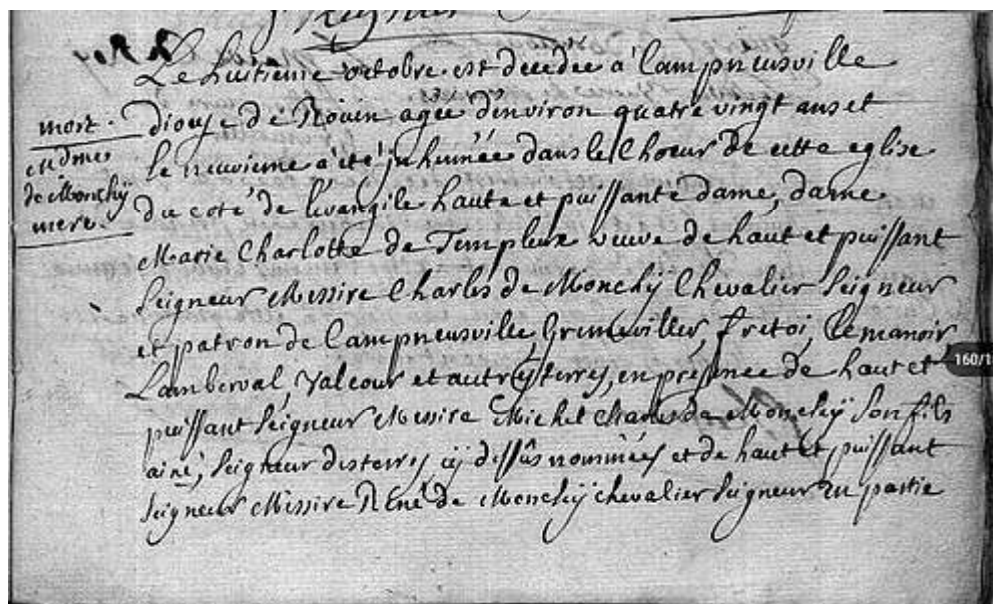 Le huitieme octobre est decedée à Campneusville
mort.
diocese de Roüen agée d'environ quatre vingt ans et
de Monchÿ
mere.
le neuvieme a été inhumée dans le Choeur de cette eglise
du coté de l'evangile haute et puissante dame, dame
Marie Charlotte de Templeux veuve de haut et puissant
Seigneur Messire Charles de Monchÿ Chevalier Seigneur
et patron de Campneusville, Fretoi, Le manoir
160/1
Lamberval, Valcour et autres terres, en présence de haut et
puissant Seigneur Messire Michel Charles de Monchÿ Son fils
ainé, Seigneur des terres cÿ dessûs nommées et de haut et puissant
Seigneur Messire René de Monchÿ chevalier Seigneur en partie